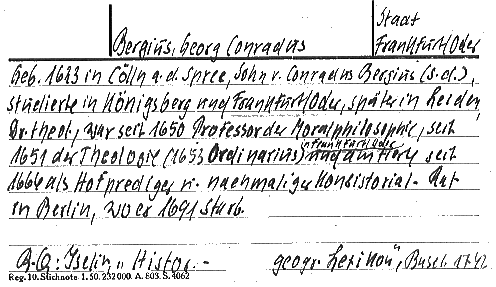 Staat
Bergius, Georg Conradus Frankfurt/Oder
Geb. 1623 in Cölln a.d. Spree, Sohn v. Conradus Bergius (s.d.),
studierte in Königsberg und Frankfurt/Oder, später in Leiden,
Dr. theol., war seit 1650 Professor der Moralphilosophie, seit
1651 der Theologie (1653 Ordinarius) in Frankfurt/Oder und am Herz, seit
1664 als Hofprediger u. nachmaliger Konsistorial-Rat
in Berlin, wo er 1691 starb.
B.Q: Iselin, „Histor.- geogr. Lexikon", Basel 1742
Reg. 10. Stichnote 1. 50. 232000. A. 803. S. 4062